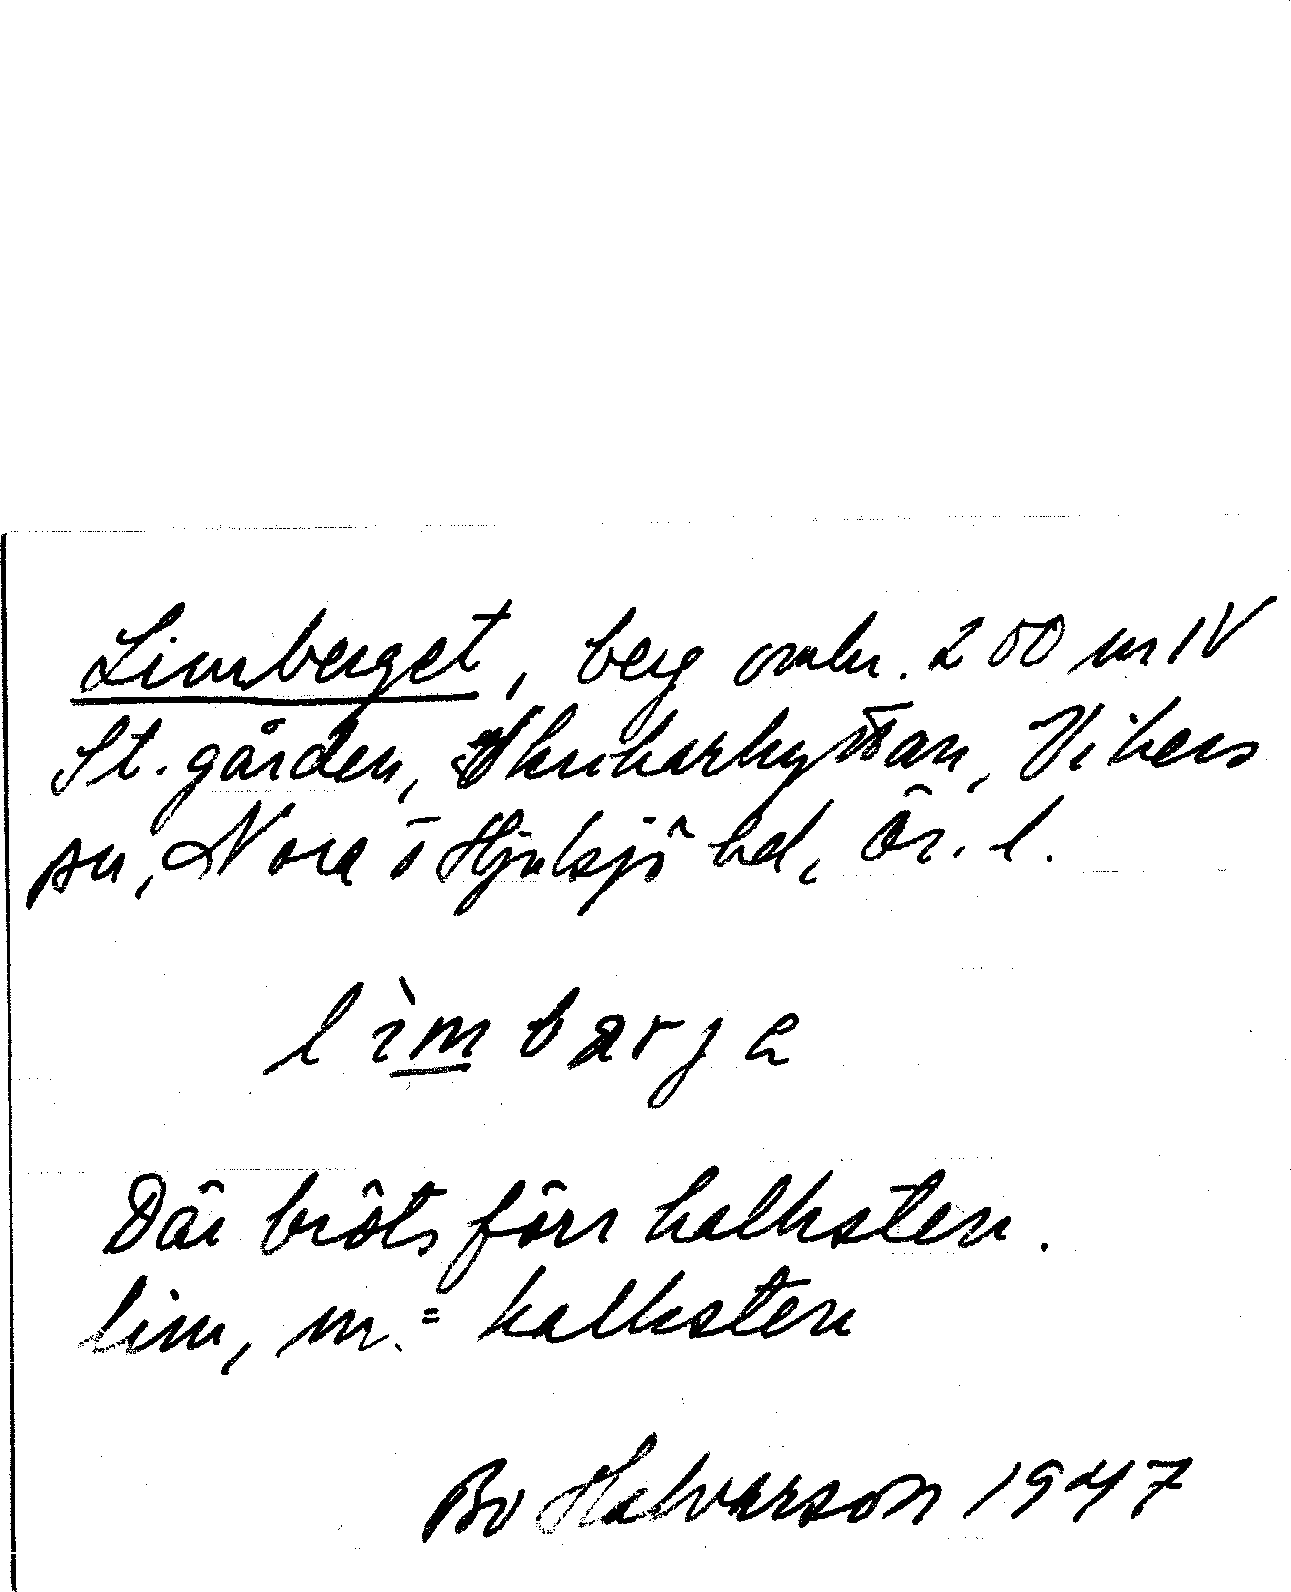 Limberget, berg omkr. 200 m N
St. gården, Skrikarhyttan, Vikers
sn, Nora o Hjulsjö hd, Ör. l.
lìmbarjə
Där bröts förr kalksten.
lim, m. = kalksten
Bo Halvarson 1947